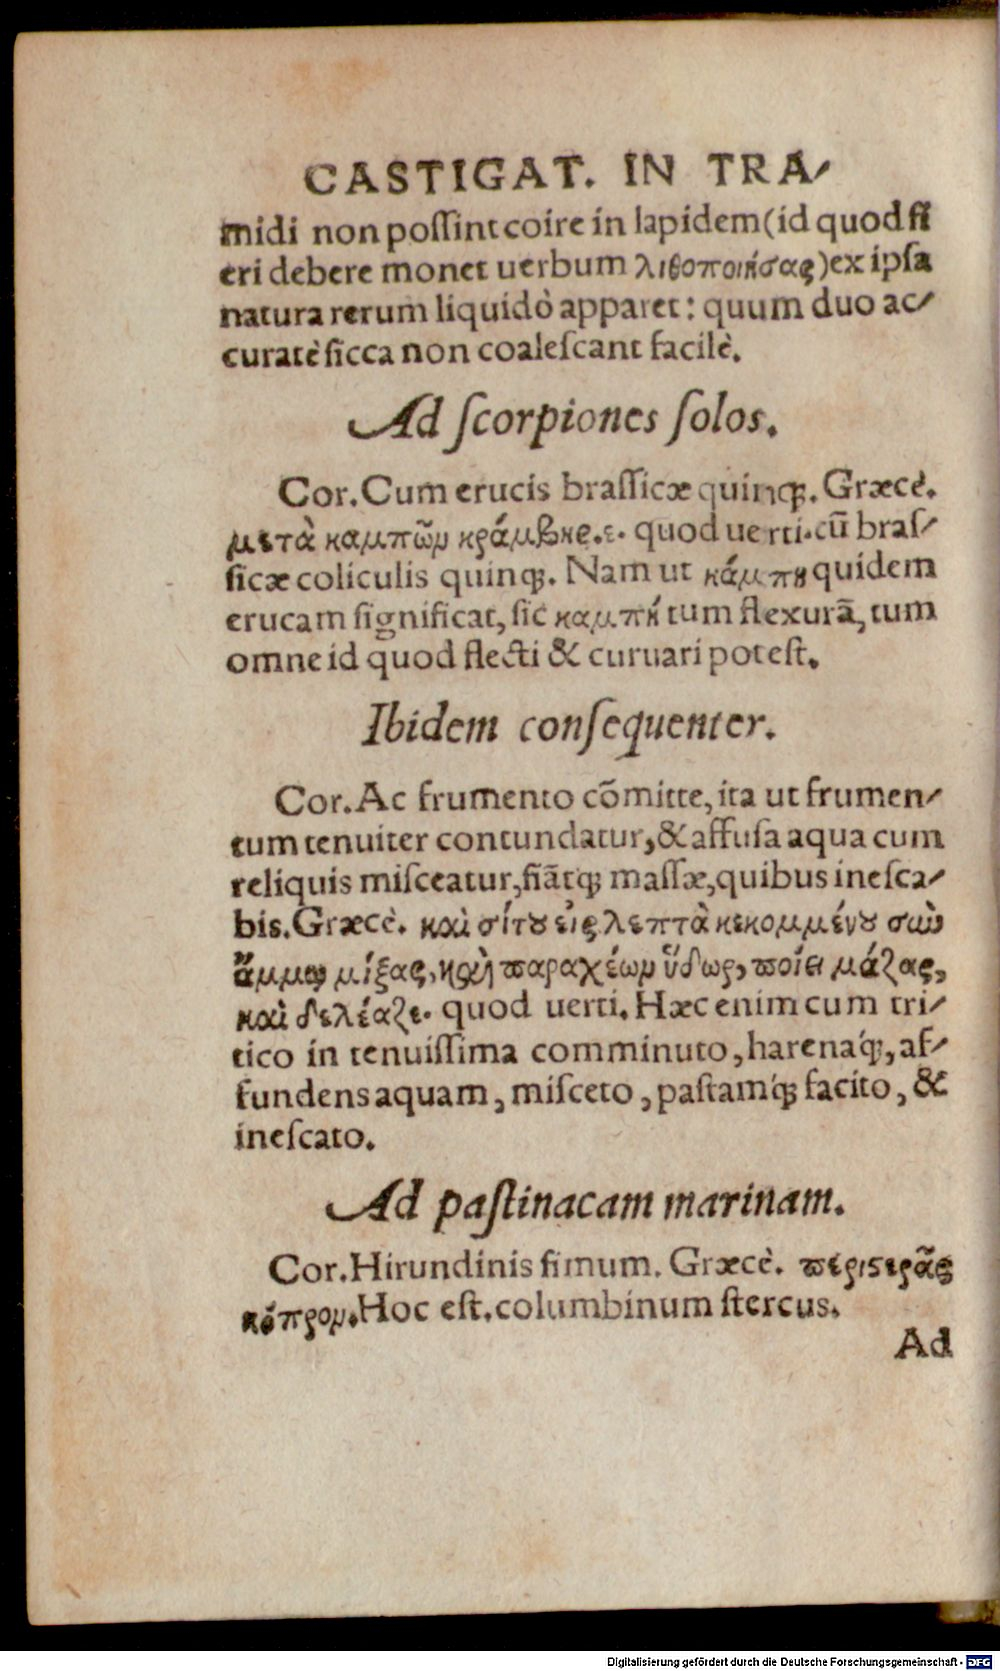 CASTIGAT. IN TRA-
midi non poſſint coire in lapidem (id quod fi
eri debere monet uerbum λιθοποιήσας) ex ipſa
natura rerum liquidò apparet: quum duo ac-
curatè ſicca non coaleſcant facilè.
Ad ſcorpiones ſolos.
Cor. Cum erucis braſſicæ quinqꝫ. Græcè.
μετὰ καμπῶν κράμβης. ε. quod uerti. cū braſ-
ſicæ coliculis quinqꝫ. Nam ut κάμπη quidem
erucam ſignificat, ſic καμπή tum flexurā, tum
omne id quod flecti & curuari poteſt.
Ibidem conſequenter.
Cor. Ac frumento cōmitte, ita ut frumen-
tum tenuiter contundatur, & affuſa aqua cum
reliquis miſceatur, fiātqꝫ maſſæ, quibus ineſca-
bis. Græcè. καὶ σίτου εἰς λεπτὰ κεκομμένου σὺν
ἄμμῳ μίξας, καὶ παραχέων ὕδωρ, ποίει μάζας,
καὶ δελέαζε. quod uerti. Hæc enim cum tri-
tico in tenuiſſima comminuto, harenáqꝫ, af-
fundens aquam, miſceto, paſtamqꝫ́ facito, &
ineſcato.
Ad paſtinacam marinam.
Cor. Hirundinis fimum. Græcè. περιστερᾶς
κόπρον. Hoc eſt. columbinum ſtercus.
Ad
Digitalisierung gefördert durch die Deutsche Forschungsgemeinschaft - DFG